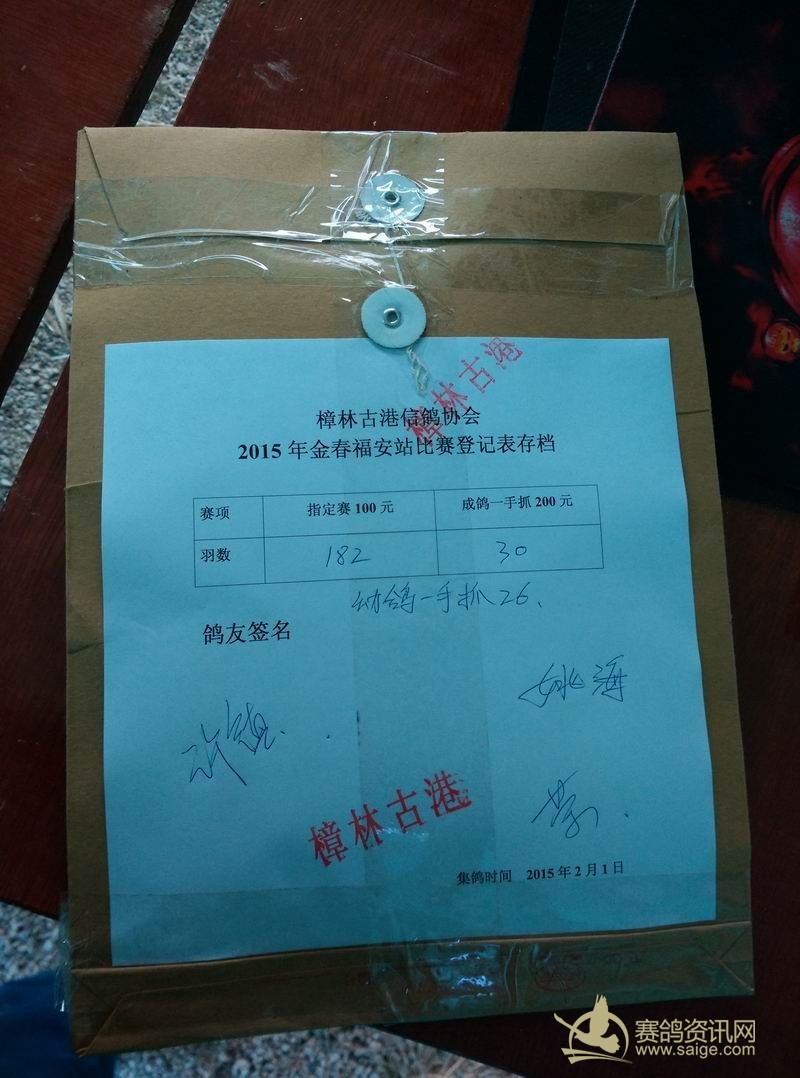 樟林古港
樟林古港信鸽协会
2015 年金春福安站比赛登记表存档
赛项 指定赛 100 元 成鸽一手抓 200 元
羽数 182 30
幼鸽一手抓 26、
鸽友签名
姚海
樟林古港
集鸽时间 2015 年 2 月 1 日
赛鸽资讯网
www.saige.com